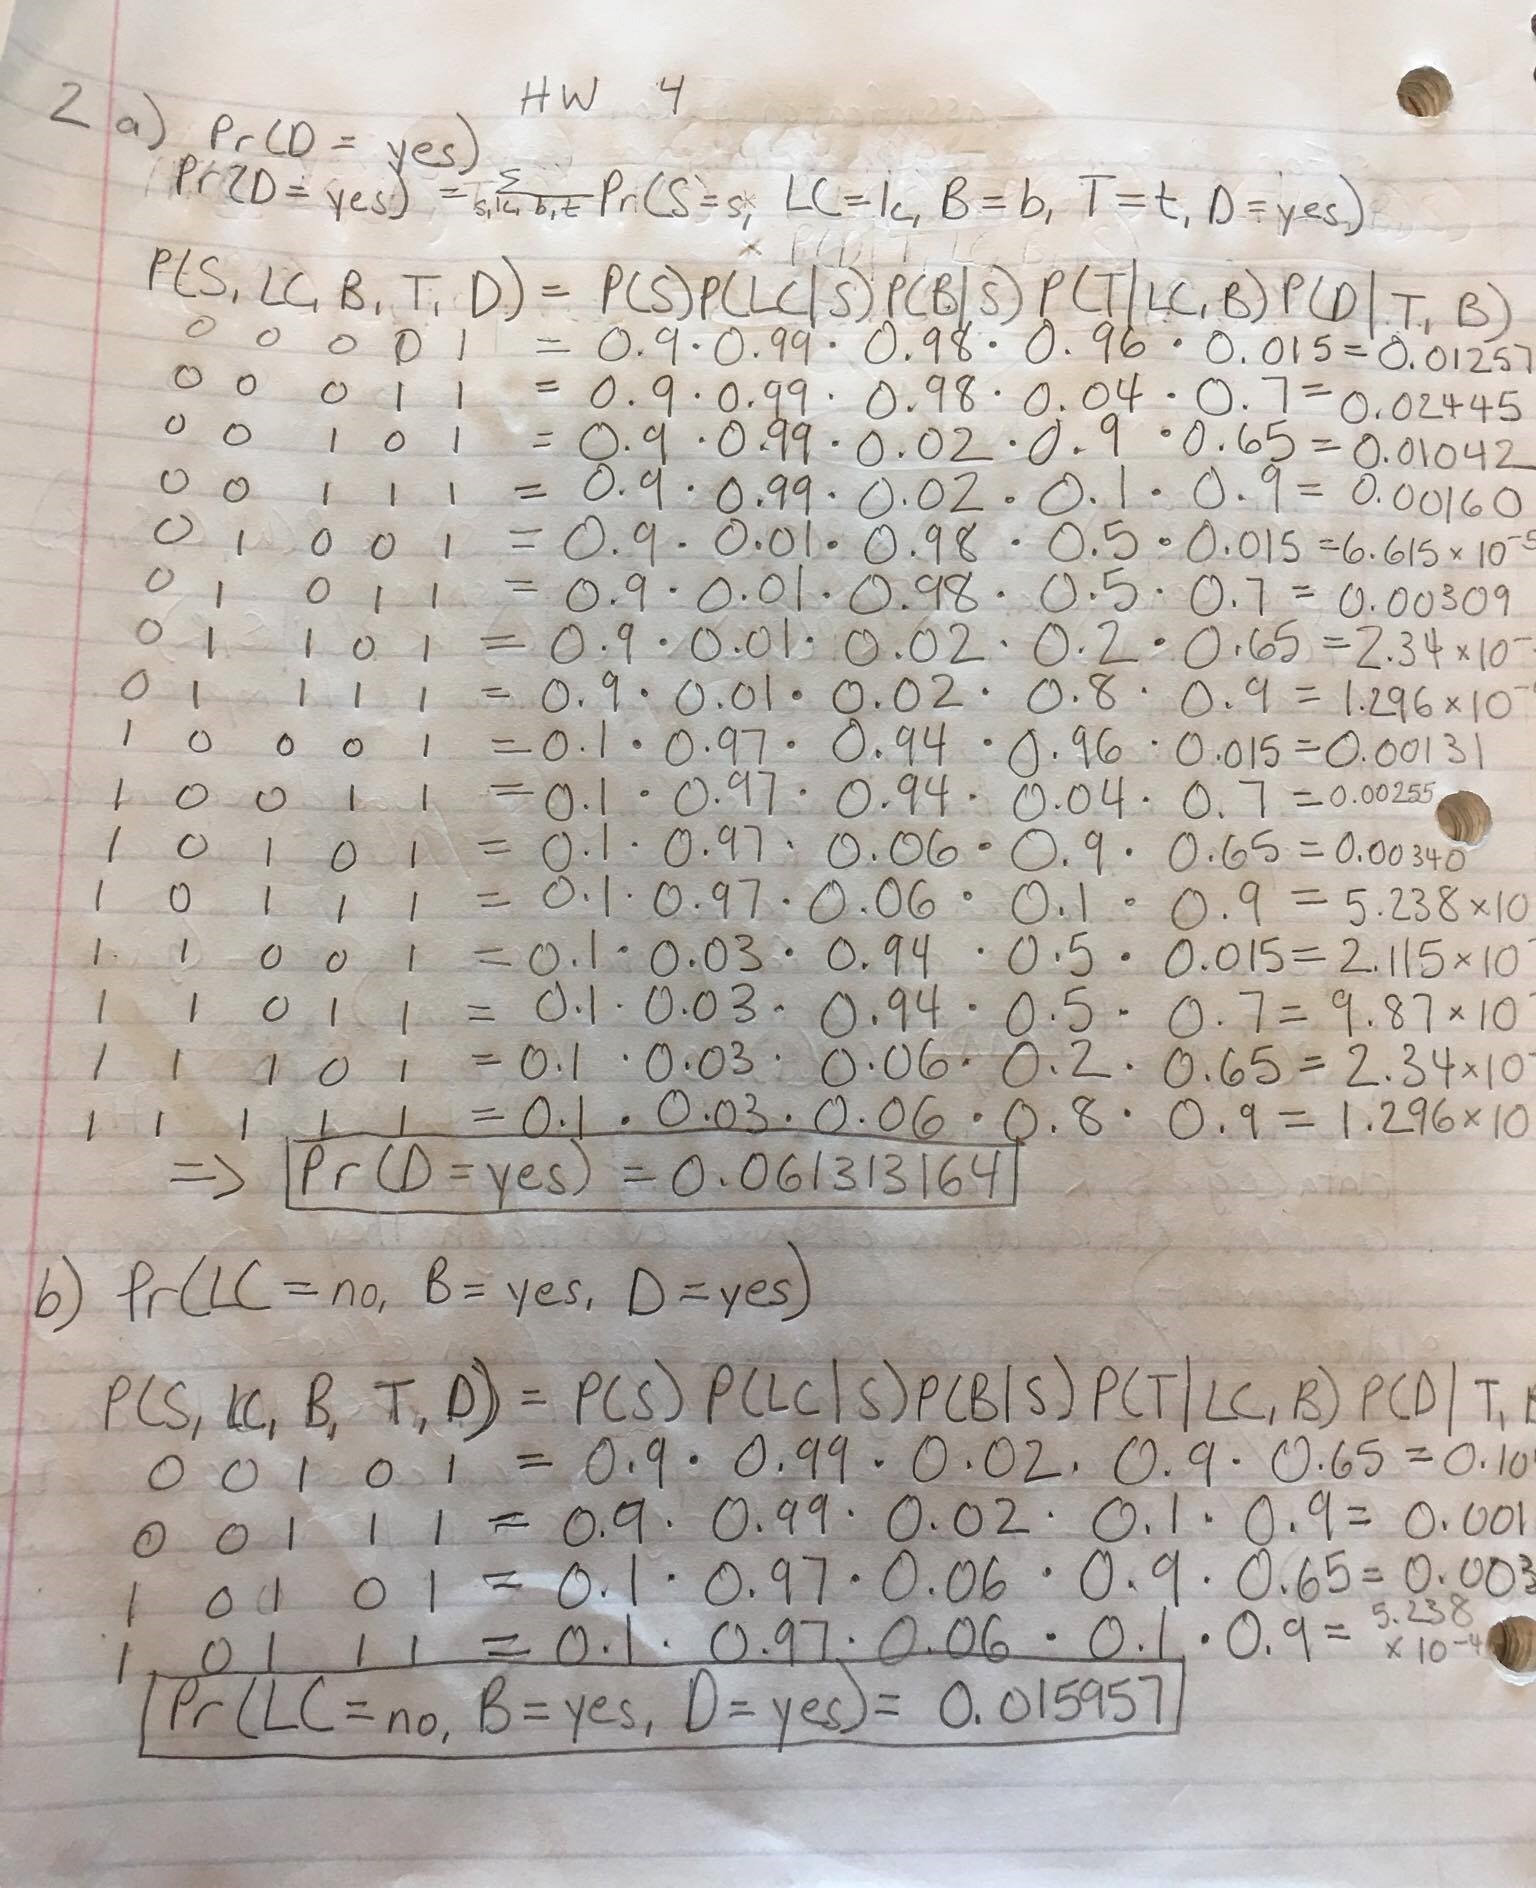 HW 4
2 a) Pr(D = yes)
Pr(D = yes) = Σ s, lc, b, t Pr(S=s, LC=lc, B=b, T=t, D=yes)
P(S, LC, B, T, D) = P(S)P(LC|S)P(B|S)P(T|LC,B)P(D|T, B)
0 0 0 0 1 = 0.9·0.99·0.98·0.96·0.015=0.01257
0 0 0 1 1 = 0.9·0.99·0.98·0.04·0.7=0.02445
0 0 1 0 1 = 0.9·0.99·0.02·0.9·0.65=0.01042
0 0 1 1 1 = 0.9·0.99·0.02·0.1·0.9=0.00160
0 1 0 0 1 = 0.9·0.01·0.98·0.5·0.015=6.615×10⁻⁵
0 1 0 1 1 = 0.9·0.01·0.98·0.5·0.7=0.00309
0 1 1 0 1 = 0.9·0.01·0.02·0.2·0.65=2.34×10⁻
0 1 1 1 1 = 0.9·0.01·0.02·0.8·0.9=1.296×10⁻
1 0 0 0 1 = 0.1·0.97·0.94·0.96·0.015=0.00131
1 0 0 1 1 = 0.1·0.97·0.94·0.04·0.7=0.00255
1 0 1 0 1 = 0.1·0.97·0.06·0.9·0.65=0.00340
1 0 1 1 1 = 0.1·0.97·0.06·0.1·0.9=5.238×10
1 1 0 0 1 = 0.1·0.03·0.94·0.5·0.015=2.115×10⁻
1 1 0 1 1 = 0.1·0.03·0.94·0.5·0.7=9.87×10
1 1 1 0 1 = 0.1·0.03·0.06·0.2·0.65=2.34×10⁻
1 1 1 1 1 = 0.1·0.03·0.06·0.8·0.9=1.296×10
=> Pr(D=yes) = 0.061313164
b) Pr(LC=no, B=yes, D=yes)
P(S, LC, B, T, D) = P(S) P(LC|S)P(B|S)P(T|LC,B)P(D|T, B
0 0 1 0 1 = 0.9·0.99·0.02·0.9·0.65=0.10
0 0 1 1 1 = 0.9·0.99·0.02·0.1·0.9=0.001
1 0 1 0 1 = 0.1·0.97·0.06·0.9·0.65=0.003
1 0 1 1 1 = 0.1·0.97·0.06·0.1·0.9=5.238 ×10⁻⁴
Pr(LC=no, B=yes, D=yes)= 0.015957